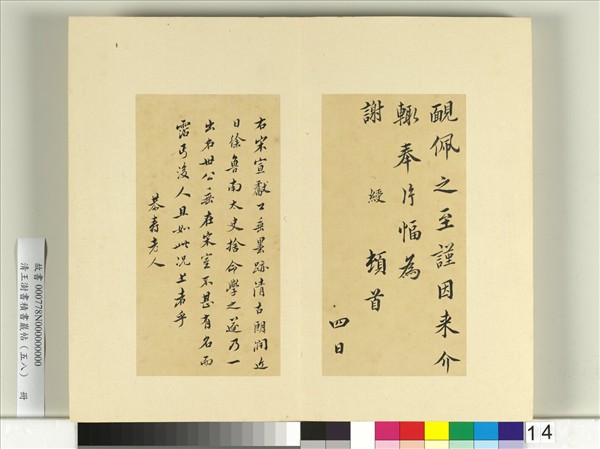 靦佩之至謹因来介
輙奉片幅為
謝 綬 頓首
四日
右宋宣獻公垂畏跡清古朗潤近
日徐魯南太史捨命學之遂乃一
出名世公垂在宋室不甚有名而
霑丐後人且如此况上者乎
恭壽老人
故書 000778N000000000
清王澍書積書巖帖（五八） 冊
14